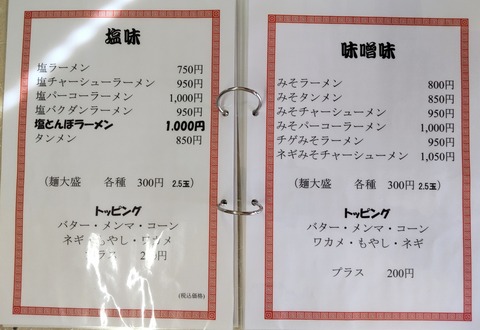 塩味
塩ラーメン 750円
塩チャーシューラーメン 950円
塩バーコーラーメン 1,000円
塩バクダンラーメン 950円
塩とんぼラーメン 1,000円
タンメン 850円
(麺大盛 各種 300円 2.5玉)
トッピング
バター・メンマ・コーン
ネギ・もやし・ワカメ
プラス 200円
(税込価格)
味噌味
みそラーメン 800円
みそタンメン 850円
みそチャーシューメン 950円
みそバーコーラーメン 1,000円
チゲみそラーメン 950円
ネギみそチャーシューメン 1,050円
(麺大盛 各種 300円 2.5玉)
トッピング
バター・メンマ・コーン
ワカメ・もやし・ネギ
プラス 200円